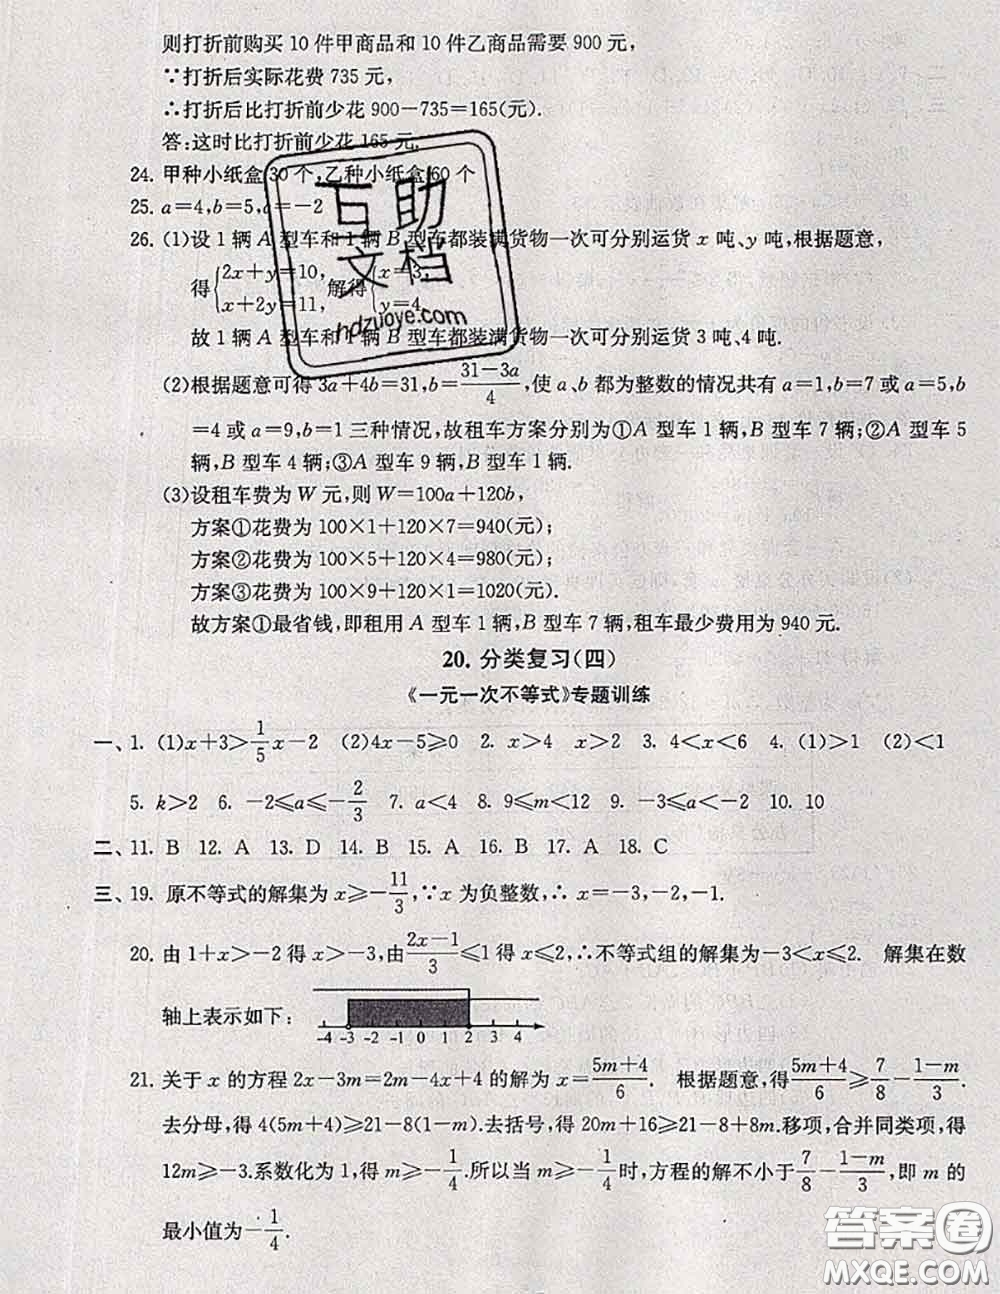 则打折前购买 10 件甲商品和 10 件乙商品需要 900 元,
∵打折后实际花费 735 元,
∴打折后比打折前少花 900-735=165(元).
答:这时比打折前少花 165 元.
24. 甲种小纸盒 30 个,乙种小纸盒 60 个
25. a=4,b=5,c=-2
26. (1)设 1 辆 A 型车和 1 辆 B 型车都装满货物一次可分别运货 x 吨、y 吨,根据题意,
得{2x+y=10, x+2y=11, 解得{x=3, y=4.
故 1 辆 A 型车和 1 辆 B 型车都装满货物一次可分别运货 3 吨、4 吨.
(2)根据题意可得 3a+4b=31,b=(31-3a)/4,使 a、b 都为整数的情况共有 a=1,b=7 或 a=5,b
=4 或 a=9,b=1 三种情况,故租车方案分别为①A 型车 1 辆,B 型车 7 辆;②A 型车 5
辆,B 型车 4 辆;③A 型车 9 辆,B 型车 1 辆.
(3)设租车费为 W 元,则 W=100a+120b,
方案①花费为 100×1+120×7=940(元);
方案②花费为 100×5+120×4=980(元);
方案③花费为 100×9+120×1=1020(元).
故方案①最省钱,即租用 A 型车 1 辆,B 型车 7 辆,租车最少费用为 940 元.
20. 分类复习(四)
《一元一次不等式》专题训练
一、1. (1)x+3>1/5x-2 (2)4x-5≥0 2. x>4 x>2 3. 4<x<6 4. (1)>1 (2)<1
5. k>2 6. -2≤a≤-2/3 7. a<4 8. 9≤m<12 9. -3≤a<-2 10. 10
二、11. B 12. A 13. D 14. B 15. A 16. B 17. A 18. C
三、19. 原不等式的解集为 x≥-11/3,∵x 为负整数,∴x=-3,-2,-1.
20. 由 1+x>-2 得 x>-3,由(2x-1)/3≤1 得 x≤2,∴不等式组的解集为-3<x≤2. 解集在数
轴上表示如下:
-4 -3 -2 -1 0 1 2 3 4
21. 关于 x 的方程 2x-3m=2m-4x+4 的解为 x=(5m+4)/6. 根据题意,得(5m+4)/6≥7/8-(1-m)/3.
去分母,得 4(5m+4)≥21-8(1-m).去括号,得 20m+16≥21-8+8m.移项,合并同类项,得
12m≥-3.系数化为 1,得 m≥-1/4.所以当 m≥-1/4时,方程的解不小于7/8-(1-m)/3,即 m 的
最小值为-1/4.
互助
文档
hdzuoye.com
答案圈
MXQE.COM